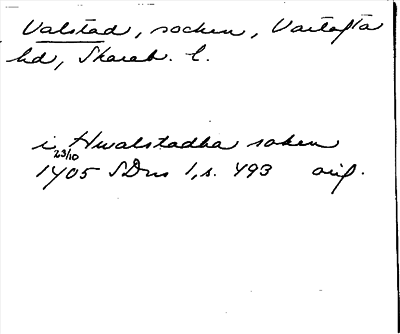 Valstad, socken, Vartofta
hd, Skarab. l.
i Hwalstadha soken
23/10
1405 SDns 1, s. 493 orig.